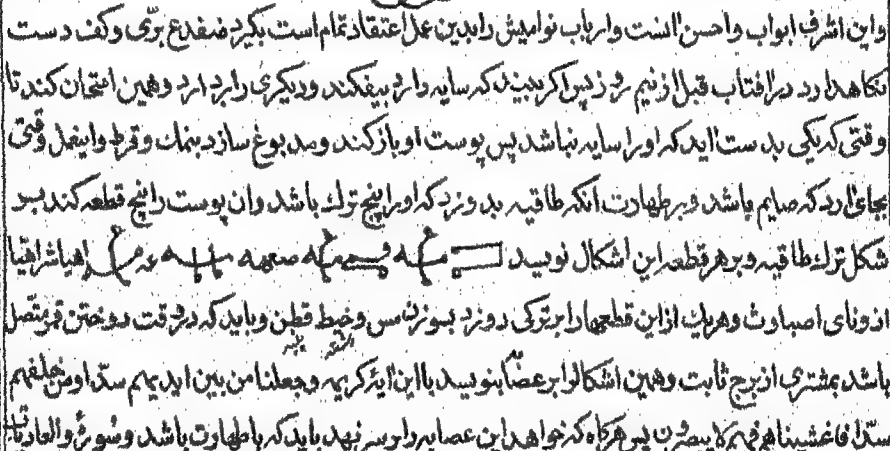 واین اشرف ابواب واحسن انست وارباب نوامیس را بدین عمل اعتقاد تمام است بگیرد ضفدع بری وکف دست
نکاهدارد در افتاب قبل از نیم روز پس اکر بیند که سایه دارد بیفکند ودیکری را برد ارد وهمین امتحان کند تا
وقتی که یکی بدست اید که اورا سایه نباشد پس پوست او باز کند ومدبوغ سازد بنمك وقرظ واینعمل وقتی
بجای ارد که صایم باشد وبر طهارت انکه طاقیه بدوزد که اورا پنج ترك باشد وان پوست را پنج قطعه کند بر
شکل ترك طاقیه وبر هر قطعه این اشکال نویسد اهیا شراهیا
ادونای اصباوث وهریك از این قطعها را بر ترکی دوزد بسوزن مس وخیط قطن وباید که در وقت دوختن قمر متصل
باشد بمشتری از برج ثابت وهمین اشکال را بر عصابه بنویسد با این ایه کریمه وجعلنا من بین ایدیهم سدا ومن خلفهم
سدا فاغشیناهم فهم لا یبصرون پس هرکاه که خواهد این عصابه را بر سر نهد باید که باطهارت باشد وسوره والعادیات